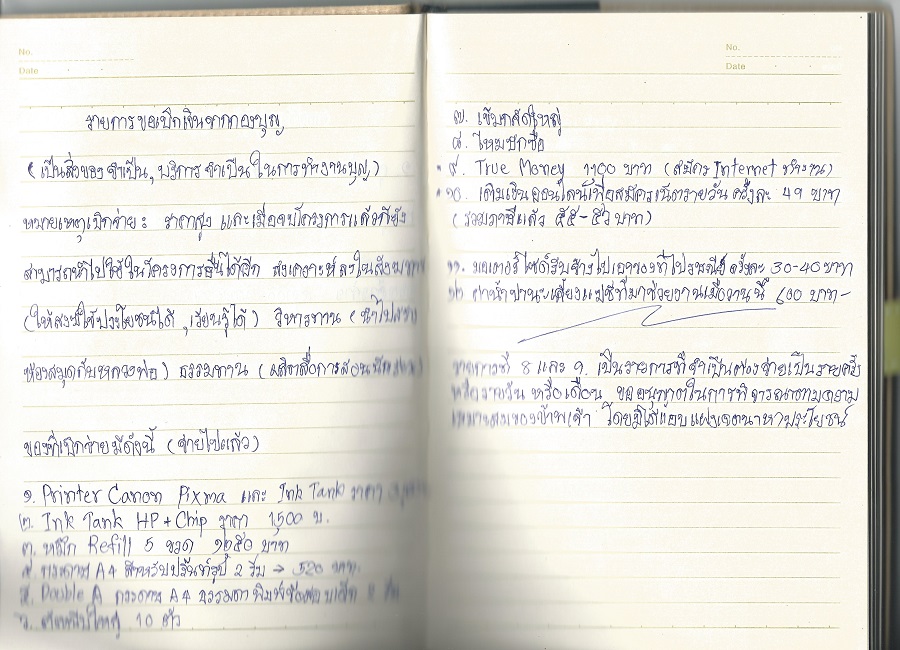 No.
Date
รายการขอเบิกเงินจากกองบุญ
(เป็นสิ่งของจำเป็น, บริการจำเป็นในการทำงานบุญ)
หมายเหตุเบิกจ่าย : ราคาสูง และเมื่อจบโครงการแล้วก็ยัง
สามารถนำไปใช้ในโครงการอื่นได้อีก สงเคราะห์สงฆ์
(ให้สงฆ์ใช้ประโยชน์ได้, เรียนรู้ได้) วิหารทาน (นำไป
ห้องสมุดกับหลวงพ่อ) ธรรมทาน (ผลิตสื่อการสอน
ของที่เบิกจ่ายมีดังนี้ (จ่ายไปแล้ว)
๑. Printer Canon Pixma และ Ink Tank ราคา
๒. Ink Tank HP + Chip ราคา 1,500 บ.
๓. หมึก Refill 5 ขวด ๑๒๕๐ บาท
๔. กระดาษ A4 สำหรับปริ้นท์รูป 2 รีม → 520 บาท
๕. Double A กระดาษ A4 ธรรมดา
๖. 10 ตัว
No.
Date
๗. เข็มกลัดใหญ่
๘. ไหมปักชื่อ
๙. True Money ๑๐๐ บาท (สมัคร Internet ทำงาน)
๑๐. เติมเงินออนไลน์เพื่อสมัครเน็ตรายวัน ครั้งละ 49 บาท
(รวมภาษีแล้ว ๕๕-๕๖ บาท)
๑๑. มอเตอร์ไซด์รับจ้างไปเอาของที่ไปรษณีย์ ครั้งละ 30-40 บาท
๑๒. ค่าน้ำปานะเลี้ยงแม่ชีที่มาช่วยงานเมื่อวานนี้ 600 บาท-
รายการที่ 8 และ ๑. เป็นรายการที่จำเป็นต้องจ่ายเป็นรายครั้ง
หรือรายวัน หรือเดือน ขออนุญาตในการพิจารณาตามความ
เหมาะสมของข้าพเจ้า โดยมิได้แอบแฝงเจตนาหาประโยชน์